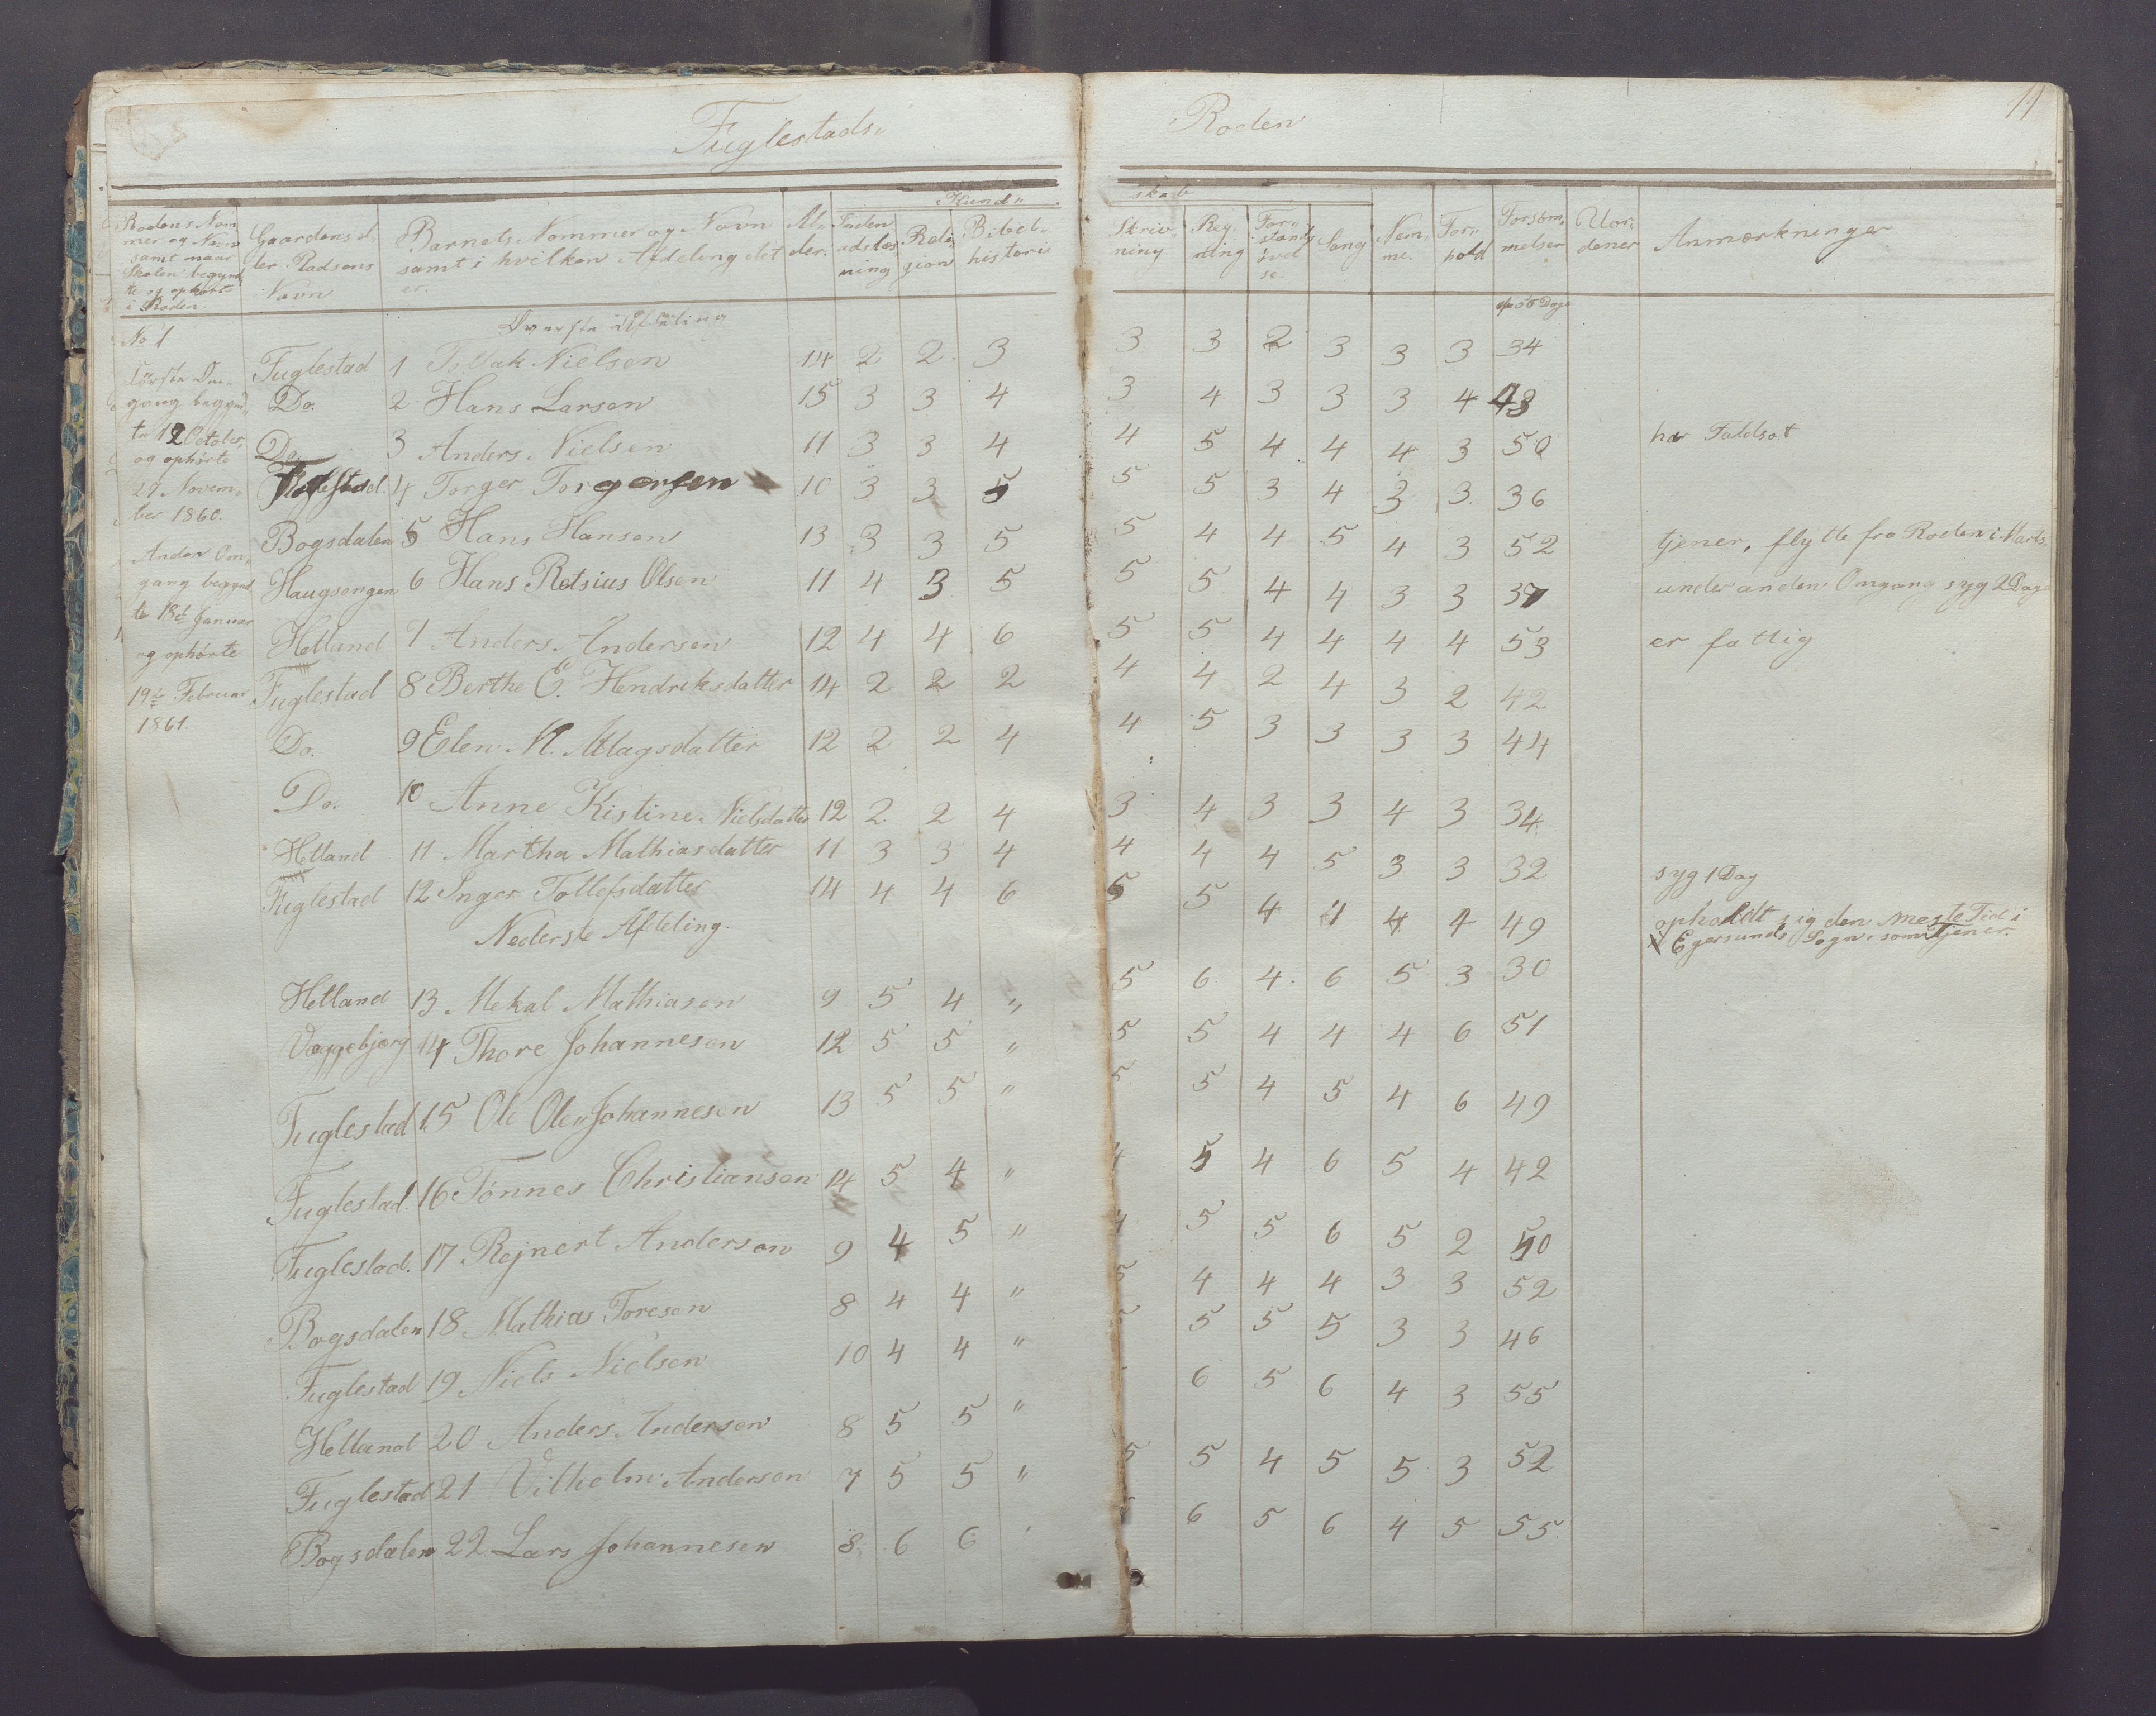 Fuglestads„ Roden 11
Kund„ skab
Rodens Nom
mer og Navn
samt naar
Skolen begynd
te og ophørte
i Roden
Gaardens el
ler Pladsens
Navn
Barnets Nommer og Navn
samt i hvilken Afdeling det
er.
Al„
der.
Inden
adslæs
ning
Reli
gion
Bibel„
histori
Skriv
ning
Reg„
ning
For„
stands
øvel
se.
Sang
Nem„
me.
For„
hold
Forsøm„
melser
Uor„
dener
Anmærkninger
No 1
Første Om„
gang begynd„
te 12 October,
og ophørte
29 Novem„
ber 1860.
Anden Om„
gang begynd
te 18de Januar
og ophørte
19de Februar
1861.
Øverste Afdeling
af 55 Dage
Fuglestad 1 Tollak Nielsen 14 2 2 3 3 3 2 3 3 3 34
Do. 2 Hans Larsen 15 3 3 4 3 4 3 3 3 4 43
Do. 3 Anders Nielsen 11 3 3 4 4 5 4 4 4 3 50 har Faldsot
4 Torger Torgersen 10 3 3 5 5 5 3 4 3 3 36
Bogsdalen 5 Hans Hansen 13 3 3 5 5 4 4 5 4 3 52 tjener, flytte fra Roden i Marts
Haugsengen 6 Hans Retsius Olsen 11 4 3 5 5 5 4 4 3 3 37 under anden Omgang syg 2 Dage
Hetland 7 Anders Andersen 12 4 4 6 5 5 4 4 4 4 53 er fattig
Fuglestad 8 Berthe C. Hendriksdatter 14 2 2 2 4 4 2 4 3 2 42
Do. 9 Elen M. Atlagsdatter 12 2 2 4 4 5 3 3 3 3 44
Do. 10 Anne Kistine Nielsdatter 12 2 2 4 3 4 3 3 4 3 34
Hetland 11 Martha Mathiasdatter 11 3 3 4 4 4 4 5 3 3 32 syg 1 Dag
Fuglestad 12 Inger Tollefsdatter 14 4 4 6 5 5 4 4 4 4 49 opholdt sig den meste Tid i
Egersunds Sogn som tjener.
Nederste Afdeling.
Hetland 13 Mekal Mathiasen 9 5 4 „ 5 6 4 6 5 3 30
Væggebjerg 14 Thore Johannesen 12 5 5 „ 5 5 4 4 4 6 51
Fuglestad 15 Ole Ole„Johannesen 13 5 5 „ 5 5 4 5 4 6 49
Fuglestad. 16 Tønnes Christiansen 14 5 4 „ 4 5 4 6 5 4 42
Fuglestad. 17 Rejnert Andersen 9 4 5 „ 4 5 5 6 5 2 50
Bogsdalen 18 Mathias Toresen 8 4 4 „ 5 4 4 4 3 3 52
Fuglestad 19 Niels Nielsen 10 4 4 „ 5 5 5 3 3 46
Hetland 20 Anders Andersen 8 5 5 „ 6 5 6 4 3 55
Fuglestad 21 Vilhelm Andersen 7 5 5 „ 5 5 4 5 5 3 52
Bogsdalen 22 Lars Johannesen 8 6 6 6 5 6 4 5 55